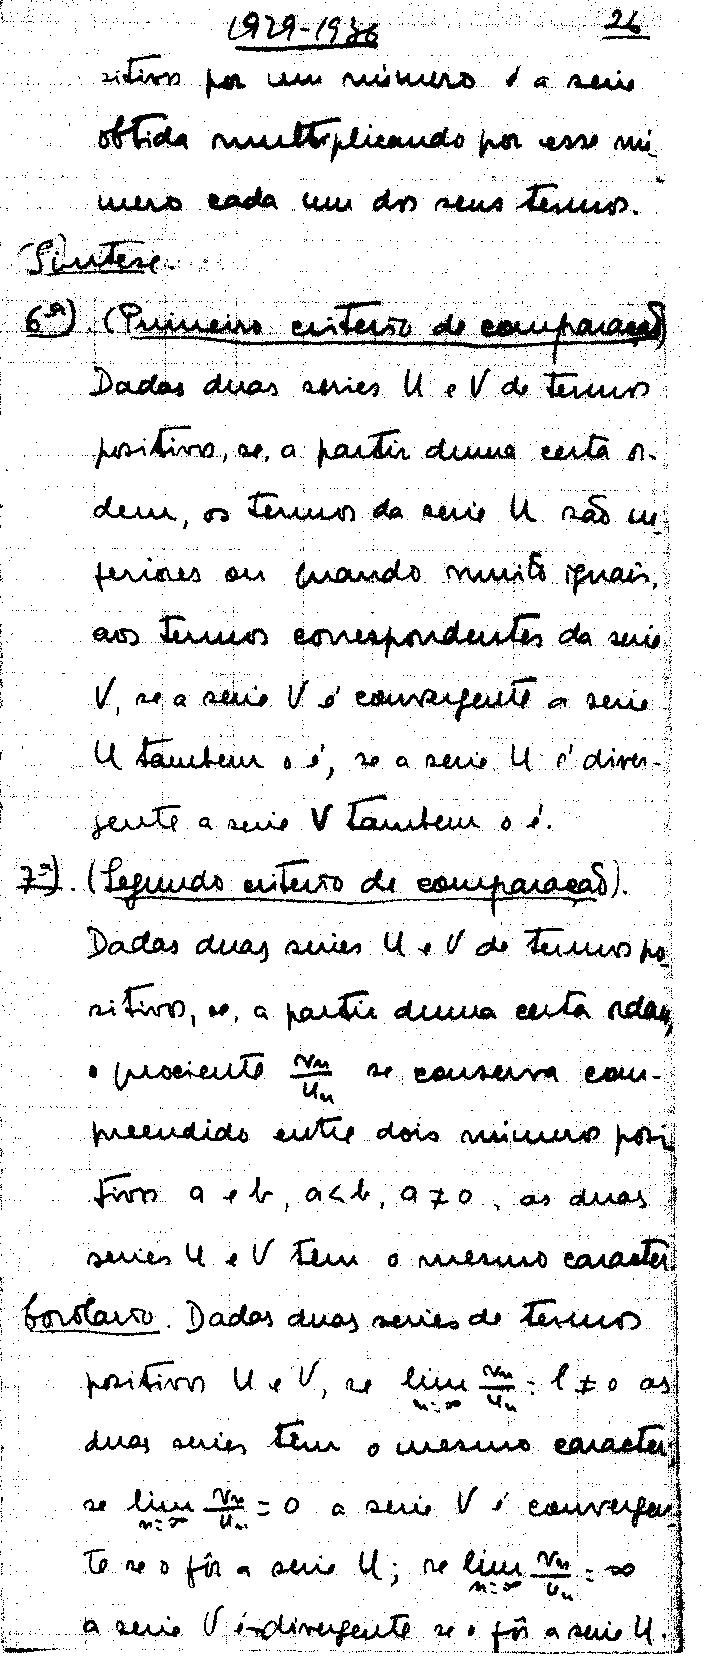 1929-1936 26
sitivos por um número é a serie
obtida multiplicando por esse nú-
mero cada um dos seus termos.
Síntese.
6ª). (Primeiro criterio de comparação)
Dadas duas series U e V de termos
positivos, se, a partir duma certa or-
dem, os termos da serie U são in-
feriores ou quando muito iguais,
aos termos correspondentes da serie
V, se a serie V é convergente a serie
U tambem o é, se a serie U é diver-
gente a serie V tambem o é.
7ª). (Segundo criterio de comparação).
Dadas duas series U e V de termos po-
sitivos, se, a partir duma certa ordem,
o quociente vn/un se conserva com-
preendido entre dois números posi-
tivos a e b, a<b, a≠0, as duas
series U e V têm o mesmo caracter.
Corolario. Dadas duas series de termos
positivos U e V, se lim n=∞ vn/un = l ≠ 0 as
duas series têm o mesmo caracter;
se lim n=∞ vn/un = 0 a serie V é convergen-
te se o fôr a serie U; se lim n=∞ vn/un = ∞
a serie V é divergente se o fôr a serie U.